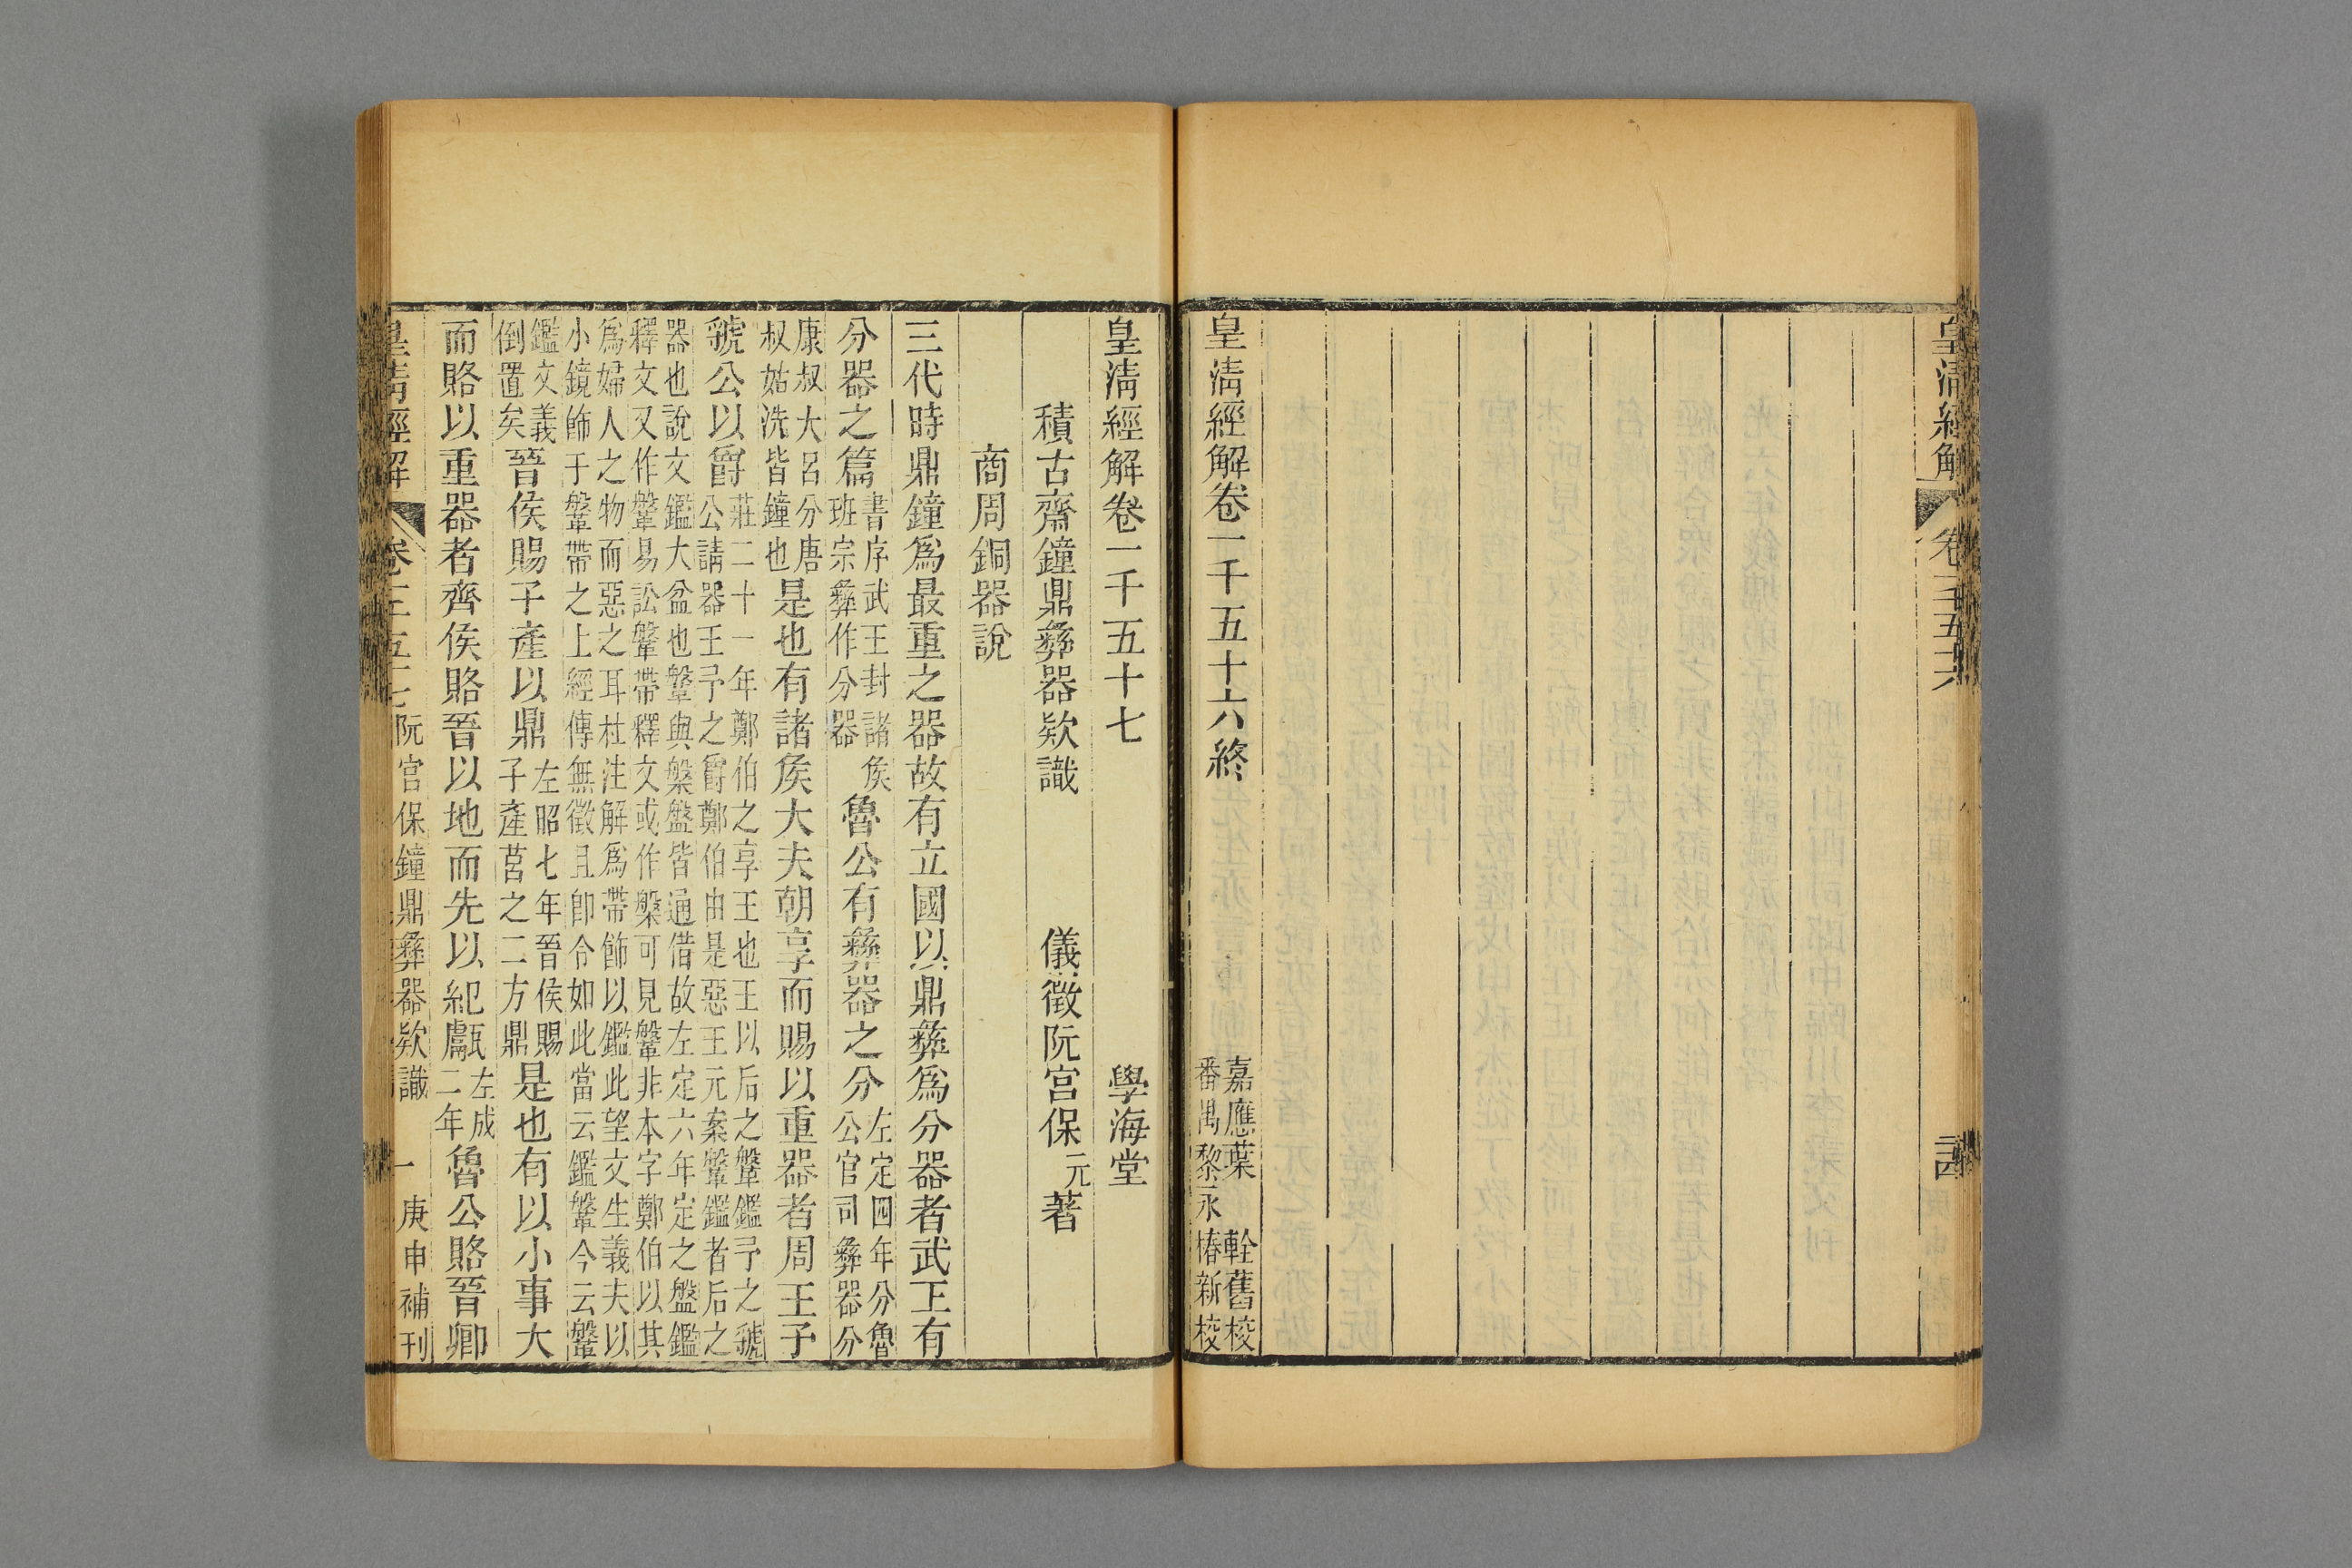 皇清經解 卷千五十六
皇清經解卷一千五十六終
嘉應葉 軨舊校
番禺黎永椿新校
皇清經解卷一千五十七 學海堂
積古齋鐘鼎彝器款識 儀徵阮宮保元著
商周銅器說
三代時鼎鐘爲最重之器故有立國以鼎彝爲分器者武王有
分器之篇書序武王封諸矦班宗彝作分器魯公有彝器之分左定四年分魯公官司彝器分
康叔大呂分唐叔姑洗皆鐘也是也有諸矦大夫朝享而賜以重器者周王予
虢公以爵莊二十一年鄭伯之享王也王以后之鞶鑑予之虢公請器王予之爵鄭伯由是惡王元案鞶鑑者后之
器也說文鑑大盆也鞶與槃盤皆通借故左定六年定之盤鑑釋文又作鞶易訟鞶帶釋文或作槃可見鞶非本字鄭伯以其
爲婦人之物而惡之耳杜注解爲帶飾以鑑此望文生義夫以小鏡飾于鞶帶之上經傳無徵且卽令如此當云鑑鞶今云鞶
鑑文義倒置矣晉侯賜子產以鼎左昭七年晉侯賜子產莒之二方鼎是也有以小事大
而賂以重器者齊侯賂晉以地而先以紀甗左成二年魯公賂晉卿
皇清經解 卷千五十七 阮宮保鐘鼎彝器款識 一 庚申補刊